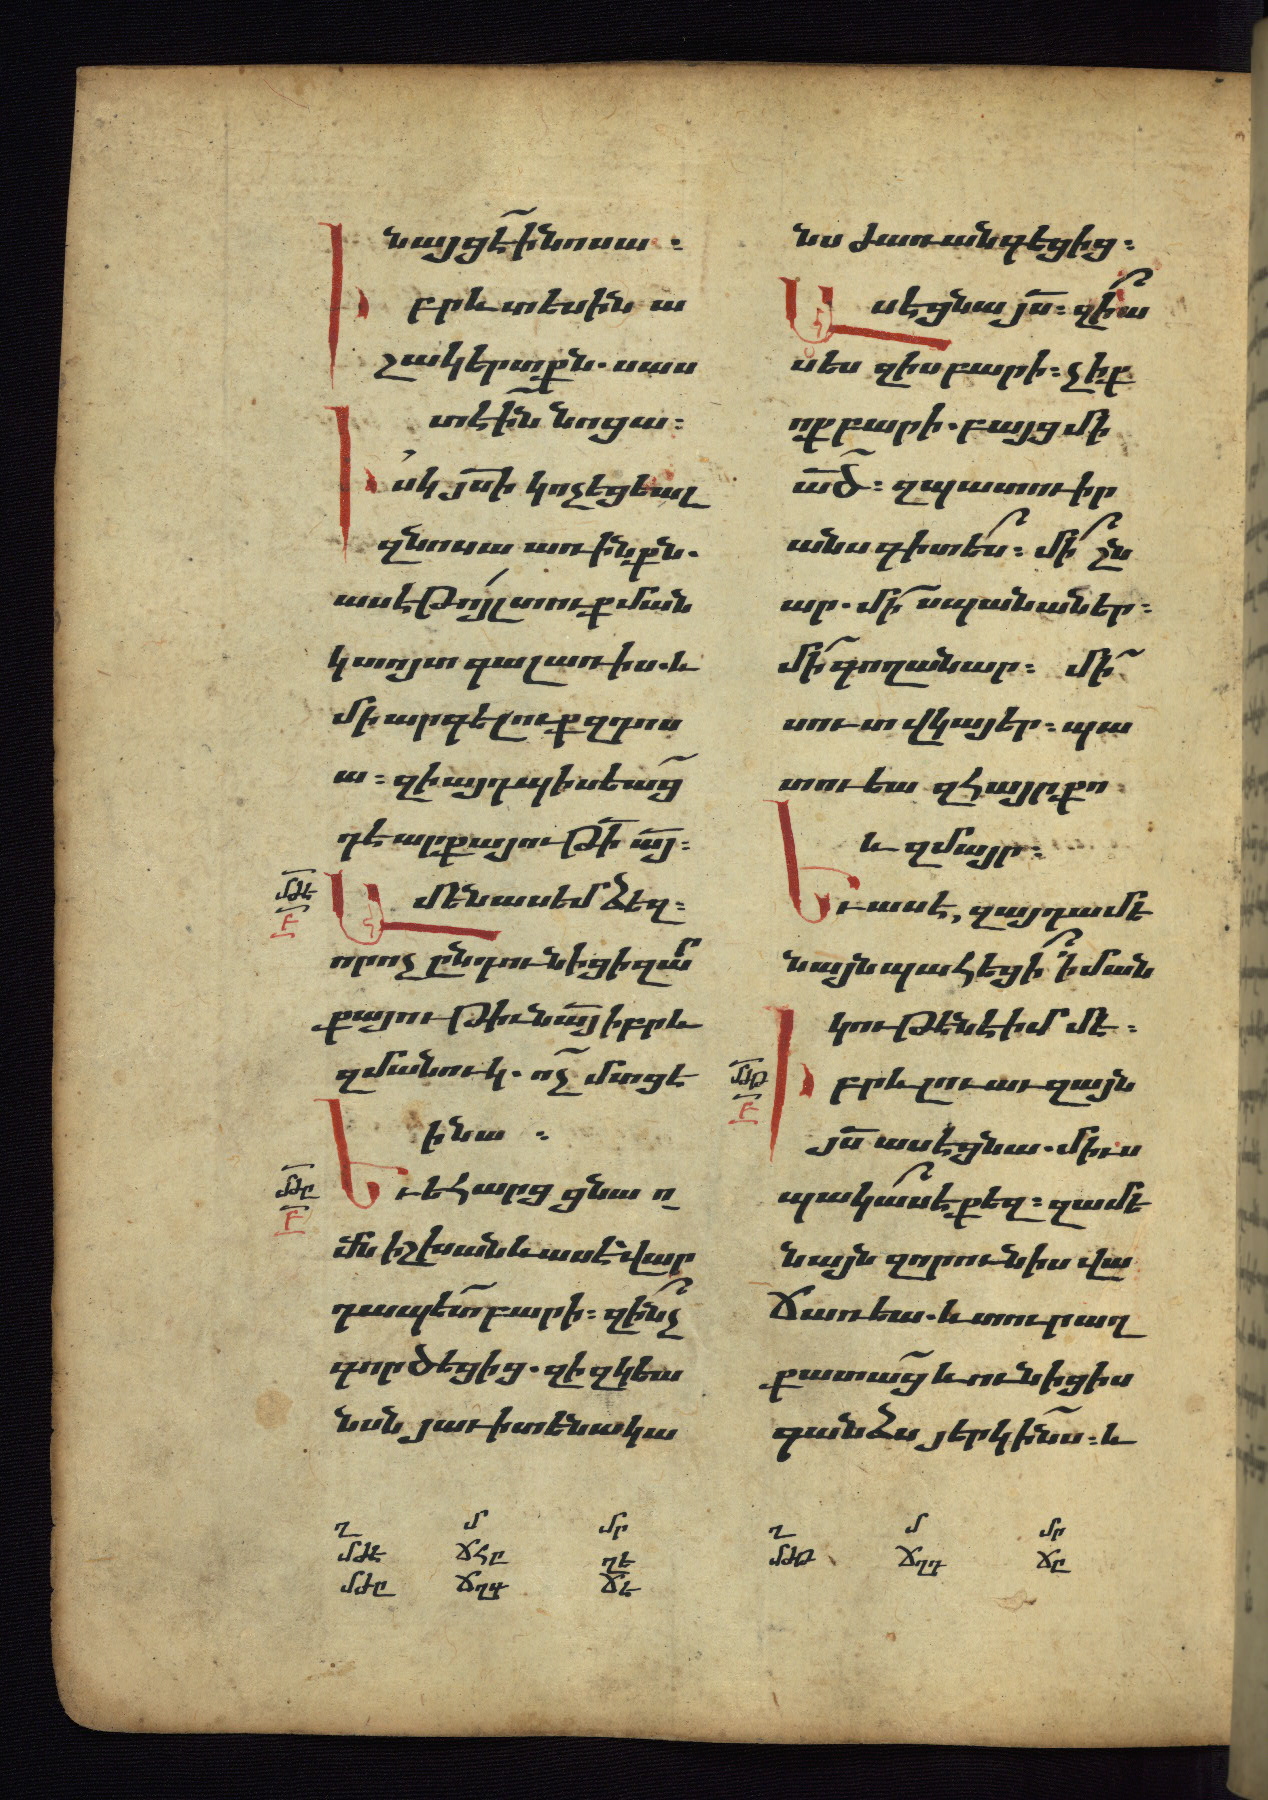 նայցէ ի նոսա ։
Իբրև տեսին ա
շակերտքն. սաս
տէին նոցա։
Իսկ յ̅ս̅ի կոչեցեալ
զնոսա առ ինքն.
ասէ Թոյլ տուք ման
կտոյտ գալ առ իս. և
մի արգելուք զդոս
ա։ զի այդպիսեաց̅
դէ արքայութի̅ ա̅յ̅։
մժէ
բ
Ամէն ասեմ ձեզ։
որ ոչ ընդունիցի զա̅ր
քայութիւն ա̅յ̅ իբրև
զմանուկ. ոչ մտցէ
ի նա ։
մժը
բ
Եւ եհարց ցնա ո
մն իշխան և ասէ վար
դապետ բարի։ զինչ
գործեցից. զի զկեա
նսն յաւիտենակա
Ղ Մ Մր
մժէ ճհը ղե
մժը ճղգ ճէ
նս ժառանգեցից։
Ասէ ցնա յ̅ս̅։ զի ա
սես զիս բարի։ չիք
ոք բարի. բայց մի
ա̅ծ̅։ զպատուիր
անս գիտես։ մի շն
ար. մի սպանաներ։
մի գողանար։ մի
սուտ վկայեր։ պա
տուեա զհայր քո
և զմայր։
Եւ ասէ, զայդ ամե
նայն պահեցի ի ման
կութենէ իմմէ։
մժթ
բ
Իբրև լուաւ զայն
յ̅ս̅ ասէ ցնա. միւս
պակաս է քեզ։ զամե
նայն զոր ունիս վա
ճառեա. և տուր աղ
քատաց̅ և ունիցիս
գանձս յերկինս։ և
Ղ Մ Մր
մժթ ճղդ ճը